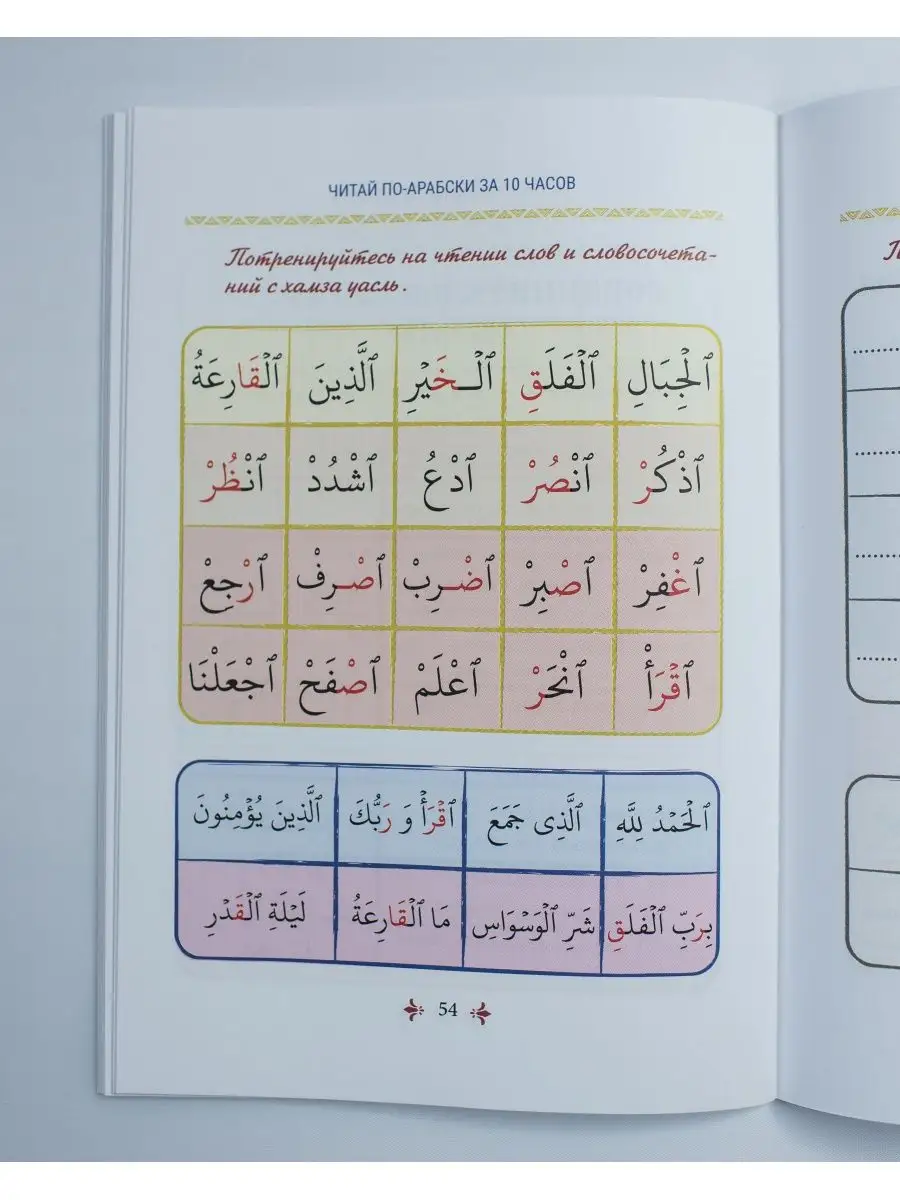 ЧИТАЙ ПО-АРАБСКИ ЗА 10 ЧАСОВ
Потренируйтесь на чтении слов и словосочета-
ний с хамза уасль.
ٱلْجِبَالِ ٱلْفَلَقِ ٱلْـخَيْرِ ٱلَّذِينَ ٱلْقَارِعَةُ
ٱذْكُرْ ٱنْصُرْ ٱدْعُ ٱشْدُدْ ٱنْظُرْ
ٱغْفِرْ ٱصْبِرْ ٱضْـرِبْ ٱصْـرِفْ ٱرْجِعْ
ٱقْرَأْ ٱنْحَرْ ٱعْلَمْ ٱصْفَحْ ٱجْعَلْنَا
ٱلْحَمْدُ لِلَّهِ ٱلَّذِى جَمَعَ ٱقْرَأْ وَ رَبُّكَ ٱلَّذِينَ يُؤْمِنُونَ
بِرَبِّ ٱلْفَلَقِ شَرِّ ٱلْوَسْوَاسِ مَا ٱلْقَارِعَةُ لَيْلَةِ ٱلْقَدْرِ
54